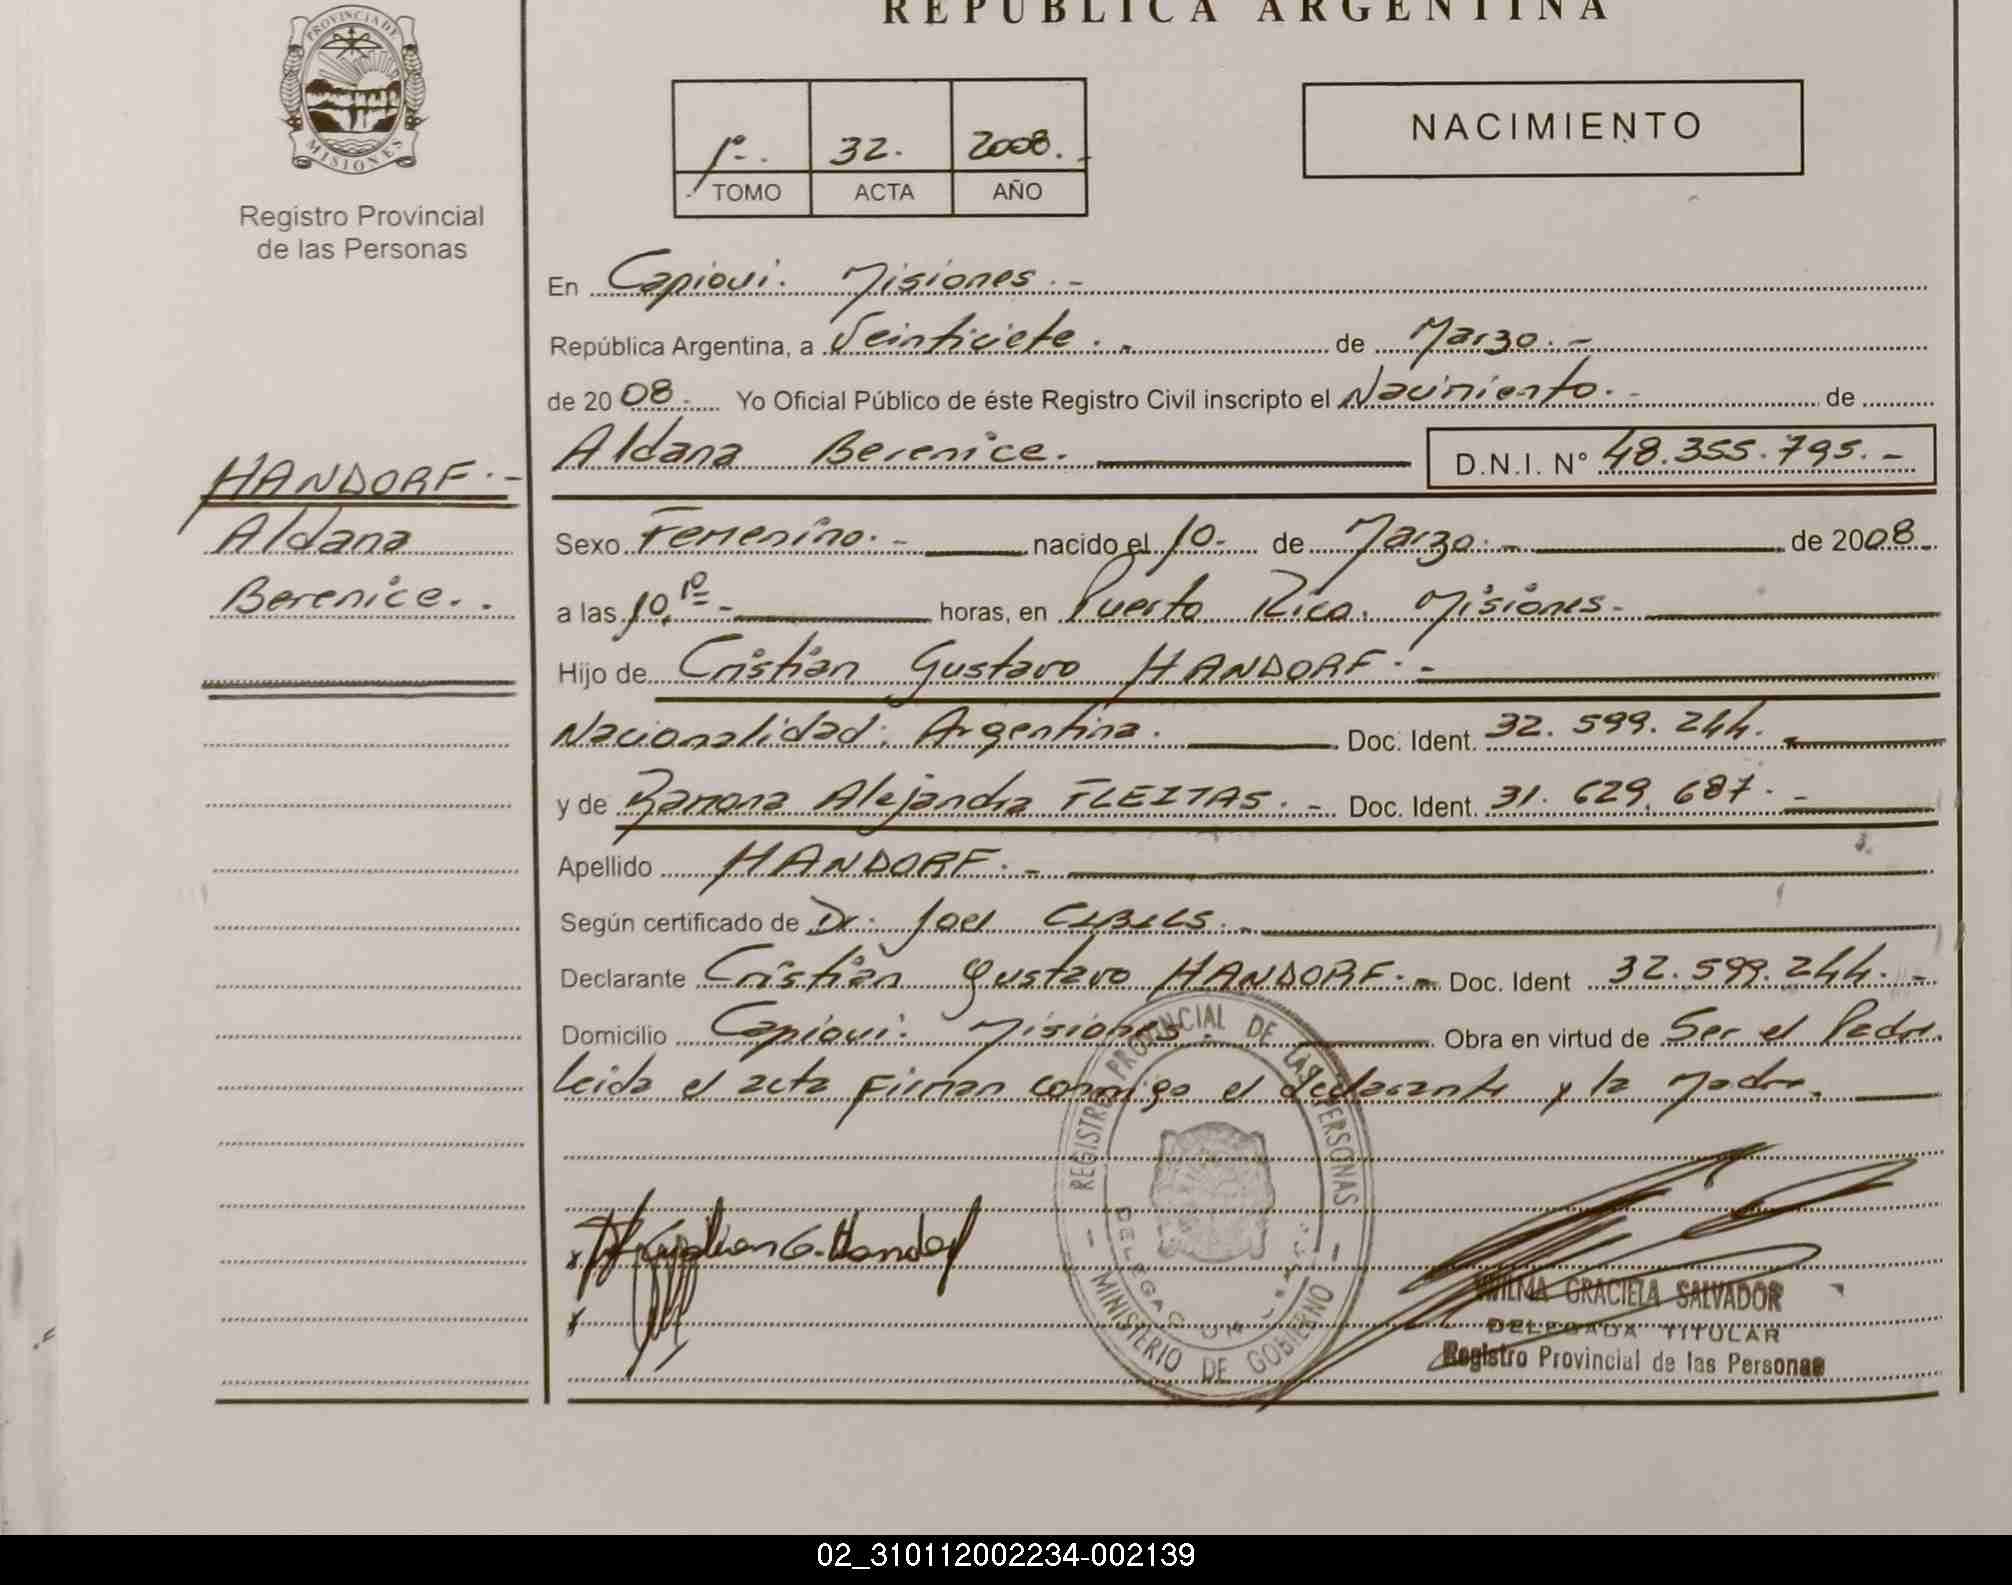 REPUBLICA ARGENTINA
PROVINCIA DE
MISIONES
Registro Provincial
de las Personas
1º. 32. 2008.-
TOMO ACTA AÑO
NACIMIENTO
En Capioví. Misiones.-
República Argentina, a Veinticiete.- de Marzo.-
de 2008.- Yo Oficial Público de éste Registro Civil inscripto el Nacimiento.- de
Aldana Berenice. D.N.I. Nº 48.355.795.-
HANDORF.-
Aldana
Berenice..
Sexo Femenino.- nacido el 10. de Marzo.- de 2008.-
a las 10,1º- horas, en Puerto Rico. Misiones.-
Hijo de Cristian Gustavo HANDORF.-
Nacionalidad: Argentina. Doc. Ident. 32.599.244.-
y de Ramona Alejandra FLEITAS.- Doc. Ident. 31.629.687.-
Apellido HANDORF.-
Según certificado de Dr. Joel CIBILS.-
Declarante Cristian Gustavo HANDORF.- Doc. Ident 32.599.244.-
Domicilio Capioví. Misiones. Obra en virtud de Ser el Padre
Leida el acta firman conmigo el declarante y la Madre.
REGISTRO PROVINCIAL DE LAS PERSONAS
MINISTERIO DE GOBIERNO
x G. Handorf
x
WILMA GRACIELA SALVADOR
DELEGADA TITULAR
Registro Provincial de las Personas
02_310112002234-002139